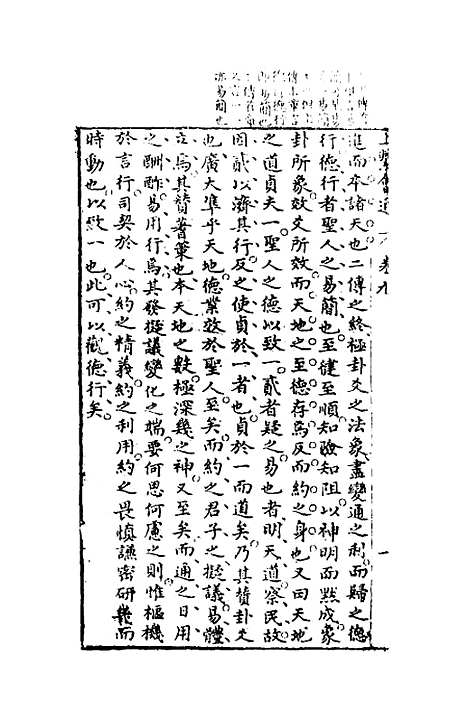 進而本諸天也二傳之終極卦爻之法象盡變通之利而歸之德
行德行者聖人之易簡也至健至順知險知阻以神明而默成象
卦所象效爻所效而天地之至德存焉反而約之身也又曰天地
之道貞夫一聖人之德以致一貳者疑之易也者明天道察民故
因貳以濟其行反之使貞於一者也貞於一而道矣乃其賛卦爻
也廣大準乎天地德業效於聖人至矣而約之君子之擬議易體
立焉其賛蓍策也本天地之數極深幾之神又至矣而通之日用
之酬酢易用行焉其發擬議變化之端要何思何慮之則惟樞機
於言行司契於人心約之精義約之利用約之畏慎謙密研幾而
時動也以致一也此可以觀德行矣
卷九
一